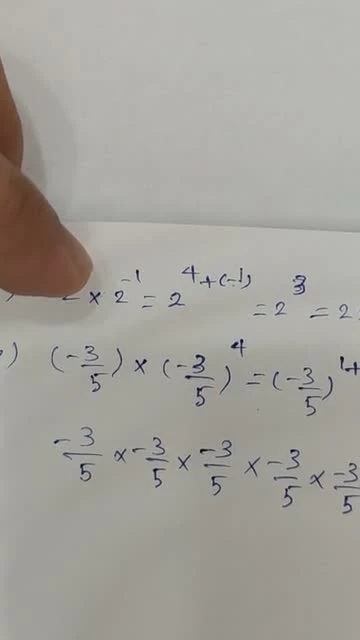 ) 2 × 2⁻¹ = 2⁴⁺⁽⁻¹⁾ = 2³ = 2
) (-3/5) × (-3/5)⁴ = (-3/5)¹⁺
-3/5 × -3/5 × -3/5 × -3/5 × -3/5